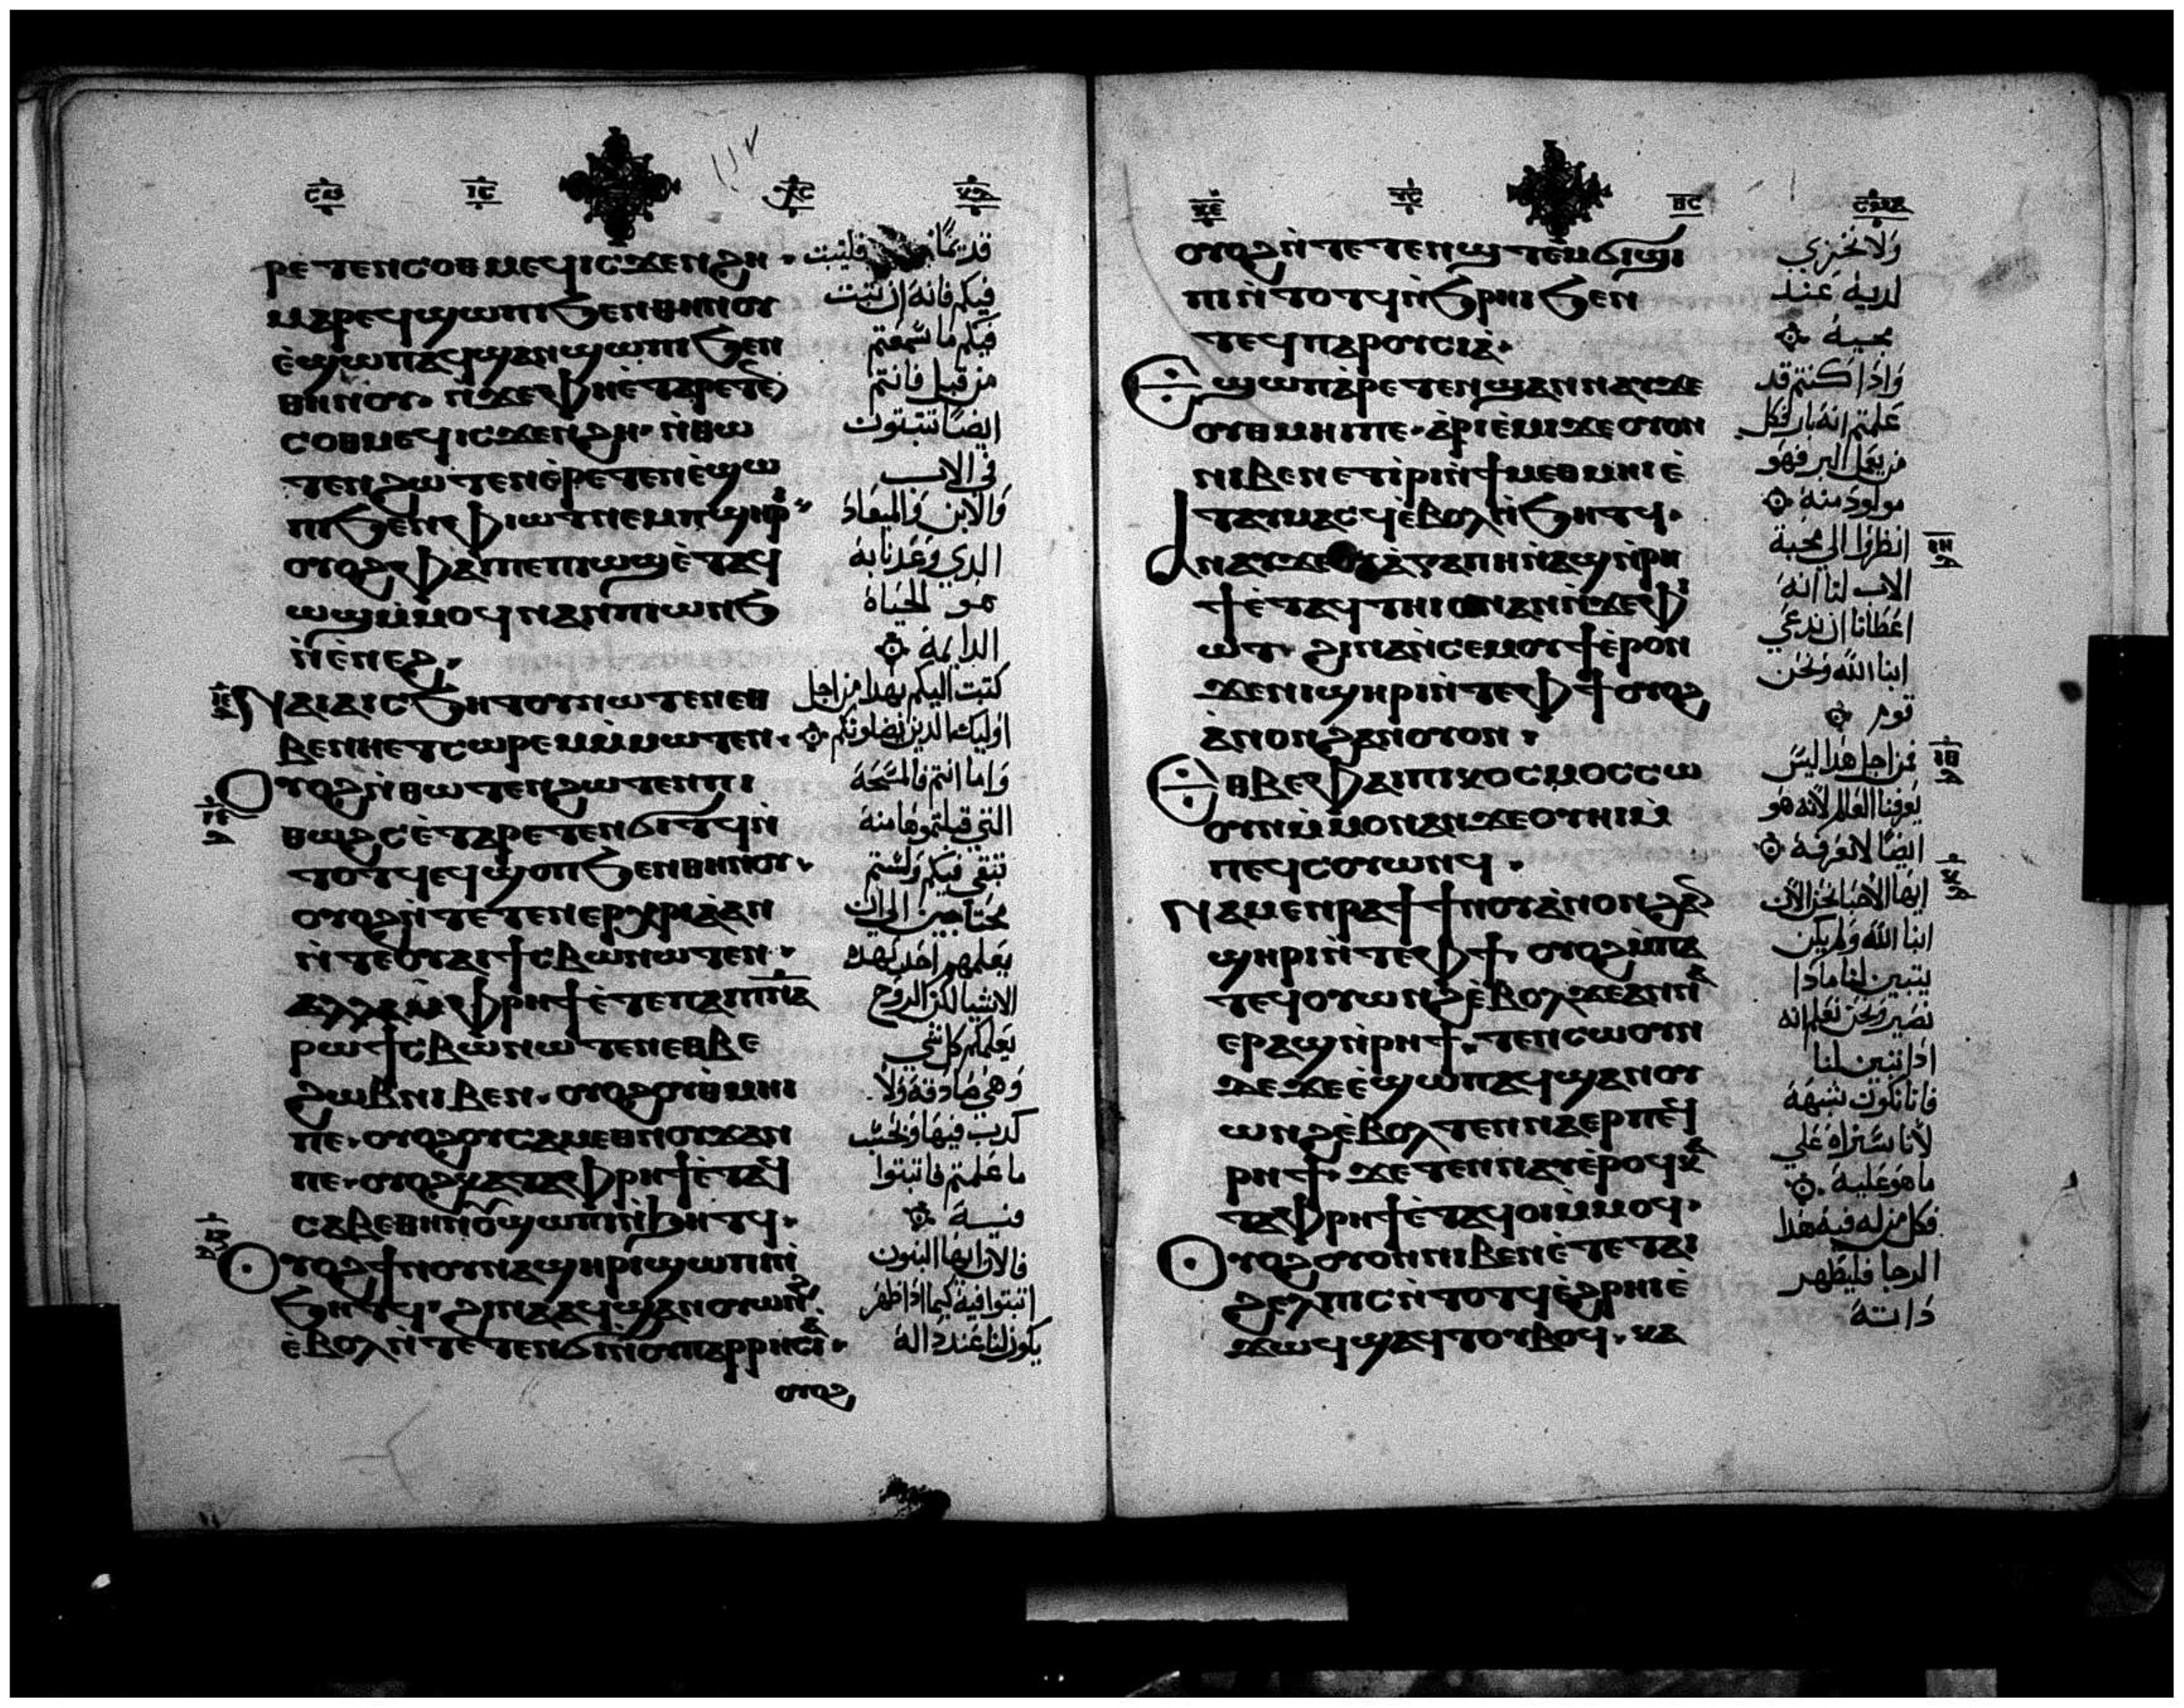 ⲣⲉⲧⲉⲛⲥⲟⲑⲙⲉϥⲓⲥϫⲉⲛϩⲏ
ⲙⲁⲣⲉϥϣⲱⲡⲓϧⲉⲛⲑⲏⲛⲟⲩ
ⲉ̀ϣⲱⲡⲁϥϣⲁⲛϣⲱⲡⲓϧⲉⲛ
ⲑⲏⲛⲟⲩ· ⲛ̀ϫⲉⲫⲏⲉ̀ⲧⲁⲣⲉⲧⲉ̄
ⲥⲟⲑⲙⲉϥⲓⲥϫⲉⲛϩⲏ· ⲛ̀ⲑⲱ
ⲧⲉⲛϩⲱⲧⲉⲛⲉ̀ⲣⲉⲧⲉⲛⲉ̀ϣⲱ
ⲡⲓϧⲉⲛⲫⲓⲱⲧⲛⲉⲙⲡϣⲏⲣ
ⲟⲩⲟϩⲫⲁⲓⲡⲉⲡⲓⲱϣⲉ̀ⲧⲁϥ
ⲱϣⲙ̀ⲙⲟϥⲛⲁⲛⲡⲓⲱⲛϧ
ⲛ̀ⲉ̀ⲛⲉϩ·
ⲛⲁⲓⲁⲓⲥϧⲏⲧⲟⲩⲛⲱⲧⲉⲛⲉⲑ
ⲃⲉⲛⲏⲉⲧⲥⲱⲣⲉⲙⲙ̀ⲙⲱⲧⲉⲛ·
ⲟⲩⲟϩⲛ̀ⲑⲱⲧⲉⲛϩⲱⲧⲉⲛⲡⲓ
ⲑⲱϩⲥⲉ̀ⲧⲁⲣⲉⲧⲉⲛϭⲓⲧϥⲛ̀
ⲧⲟⲧϥⲉϥϣⲟⲡϧⲉⲛⲑⲏⲛⲟⲩ·
ⲟⲩⲟϩⲛ̀ⲧⲉⲧⲉⲛⲉⲣⲭⲣⲓⲁ̀ⲁⲛ
ⲛ̀ⲧⲉⲟⲩⲁⲓϯⲥⲃⲱⲛⲱⲧⲉⲛ·
ⲁⲗⲗⲁⲙ̀ⲫⲣⲏϯⲉ̀ⲧⲉⲡⲁⲓⲡⲛⲁ
ⲣⲱϯⲥⲃⲱⲛⲱⲧⲉⲛⲉⲑⲃⲉ
ϩⲱⲃⲛⲓⲃⲉⲛ· ⲟⲩⲟϩⲟⲩⲑⲙⲏⲓ
ⲡⲉ· ⲟⲩⲟϩⲟⲩⲥⲁⲙⲉⲑⲛⲟⲩϫⲁⲛ
ⲡⲉ· ⲟⲩⲟϩⲕⲁⲧⲁⲫⲣⲏϯⲉ̀ⲧⲁϥ
ⲥⲁⲃⲉⲑⲏⲛⲟⲩϣⲱⲡⲓⲛ̀ϧⲏⲧϥ·
ⲟⲩⲟϩϯⲛⲟⲩⲛⲁϣⲏⲣⲓϣⲱⲡⲓⲛ̀
ϧⲏⲧϥ· ϩⲓⲛⲁⲁϥϣⲁⲛⲟⲩⲱⲛϩ
ⲉ̀ⲃⲟⲗⲛ̀ⲧⲉⲧⲉⲛϭⲓⲛ̀ⲟⲩⲡⲁⲣⲣⲏⲥⲓⲁ̀·
ⲟⲩⲟϩ
فيكم فانه ان تثبت
فيكم ما سمعتم
من قبل فانتم
ايضا تثبتون
في الاب
والابن والميعاد
الدي وعدنا به
هو الحياة
الدايمة
كتبت اليكم بهدا من اجل
اوليك الدين يضلونكم
واما انتم فالمسحة
التي قبلتموها منه
تبقي فيكم ولستم
محتاجين الي ان
يعلمهم احد بهده
الاشيا لكن الروح
يعلمكم كل شي
وهي صادقة ولا
كدب فيها وبحسب
ما علمتم فاثبتوا
فيه
فالان ايها البنون
اثبتوا فيه كيما ادا ظهر
يكون لنا عنده داله
ⲟⲩⲟϩⲛ̀ⲧⲉⲧⲉⲛϣⲧⲉⲙϭⲓϣⲓ
ⲡⲓⲛ̀ⲧⲟⲧϥⲛ̀ϧⲣⲏⲓϧⲉⲛ
ⲧⲉϥⲡⲁⲣⲟⲩⲥⲓⲁ̀·
ⲉϣⲱⲡⲁ̀ⲣⲉⲧⲉⲛϣⲁⲛⲛⲁⲩϫⲉ
ⲟⲩⲑⲙⲏⲓⲡⲉ· ⲁ̀ⲣⲓⲉ̀ⲙⲓϫⲉⲟⲩⲟⲛ
ⲛⲓⲃⲉⲛⲉⲧⲓ̀ⲣⲓⲛ̀ϯⲙⲉⲑⲙⲏⲓⲉ̀
ⲧⲁⲩⲙⲁⲥϥⲉ̀ⲃⲟⲗⲛ̀ϧⲏⲧϥ·
ⲁⲛⲁⲩϫⲉⲟⲩⲁ̀ⲅⲁⲡⲏⲛ̀ⲁϣⲛ̀ⲣⲏ
ϯⲉ̀ⲧⲁϥⲧⲏⲓⲥⲛⲁⲛⲛ̀ϫⲉⲫⲓ
ⲱⲧ· ϩⲓⲛⲁⲛ̀ⲥⲉⲙⲟⲩϯⲉ̀ⲣⲟⲛ
ϫⲉⲛⲓϣⲏⲣⲓⲛ̀ⲧⲉⲫϯⲟⲩⲟϩ
ⲁ̀ⲛⲟⲛϩⲁⲛⲟⲩⲟⲛ·
ⲉⲑⲃⲉⲫⲁⲓⲡⲓⲕⲟⲥⲙⲟⲥⲥⲱ
ⲟⲩⲛⲙ̀ⲙⲟⲛⲁⲛϫⲉⲟⲩⲏⲓⲙ̀
ⲡⲉϥⲥⲟⲩⲱⲛϥ·
ⲛⲁⲙⲉⲛⲣⲁϯϯⲛⲟⲩⲁ̀ⲛⲟⲛϩⲁ̄
ϣⲏⲣⲓⲛ̀ⲧⲉⲫϯ· ⲟⲩⲟϩⲙ̀ⲡⲁ
ⲧⲉϥⲟⲩⲱⲛϩⲉ̀ⲃⲟⲗϫⲉⲁⲛⲛⲁ
ⲉⲣⲁϣⲛ̀ⲣⲏϯ· ⲧⲉⲛⲥⲱⲟⲩⲛ
ϫⲉϫⲉⲉ̀ϣⲱⲡⲁϥϣⲁⲛⲟⲩ
ⲱⲛϩⲉ̀ⲃⲟⲗⲧⲉⲛⲛⲁⲉⲣⲡⲉϥ
ⲣⲏϯ· ϫⲉⲧⲉⲛⲛⲁⲩⲉ̀ⲣⲟϥⲕⲁ
ⲧⲁⲫⲣⲏϯⲉ̀ⲧⲁϥⲟⲓⲙ̀ⲙⲟϥ·
ⲟⲩⲟϩⲟⲩⲟⲛⲛⲓⲃⲉⲛⲉ̀ⲧⲉⲧⲁⲓ
ϩⲉⲗⲡⲓⲥⲛ̀ⲧⲟⲧϥⲉ̀ϩⲣⲏⲓⲉ̀
ϫⲱϥϣⲁϥⲧⲟⲩⲃⲟϥ· ⲕⲁ
ولا نخزي
لديه عند
مجيه
وادا كنتم قد
علمتم انه بار فكل
من يعمل البر فهو
مولود منه
انظروا الي محبة
الاب لنا انه
اعطانا ان ندعي
ابنا الله ونحن
فمن اجل هدا ليس
يعرفنا العالم لانه هو
ايضا لا يعرفه
ايها الاحبا نحن الان
ابنا الله ولم يكن
يتبين لنا مادا
نصير ونحن نعلم انه
ادا تبين لنا
فانا نكون شبهه
لانا سنراه علي
ما هو عليه
فكل من له فيه هدا
الرجا فليطهر
داته